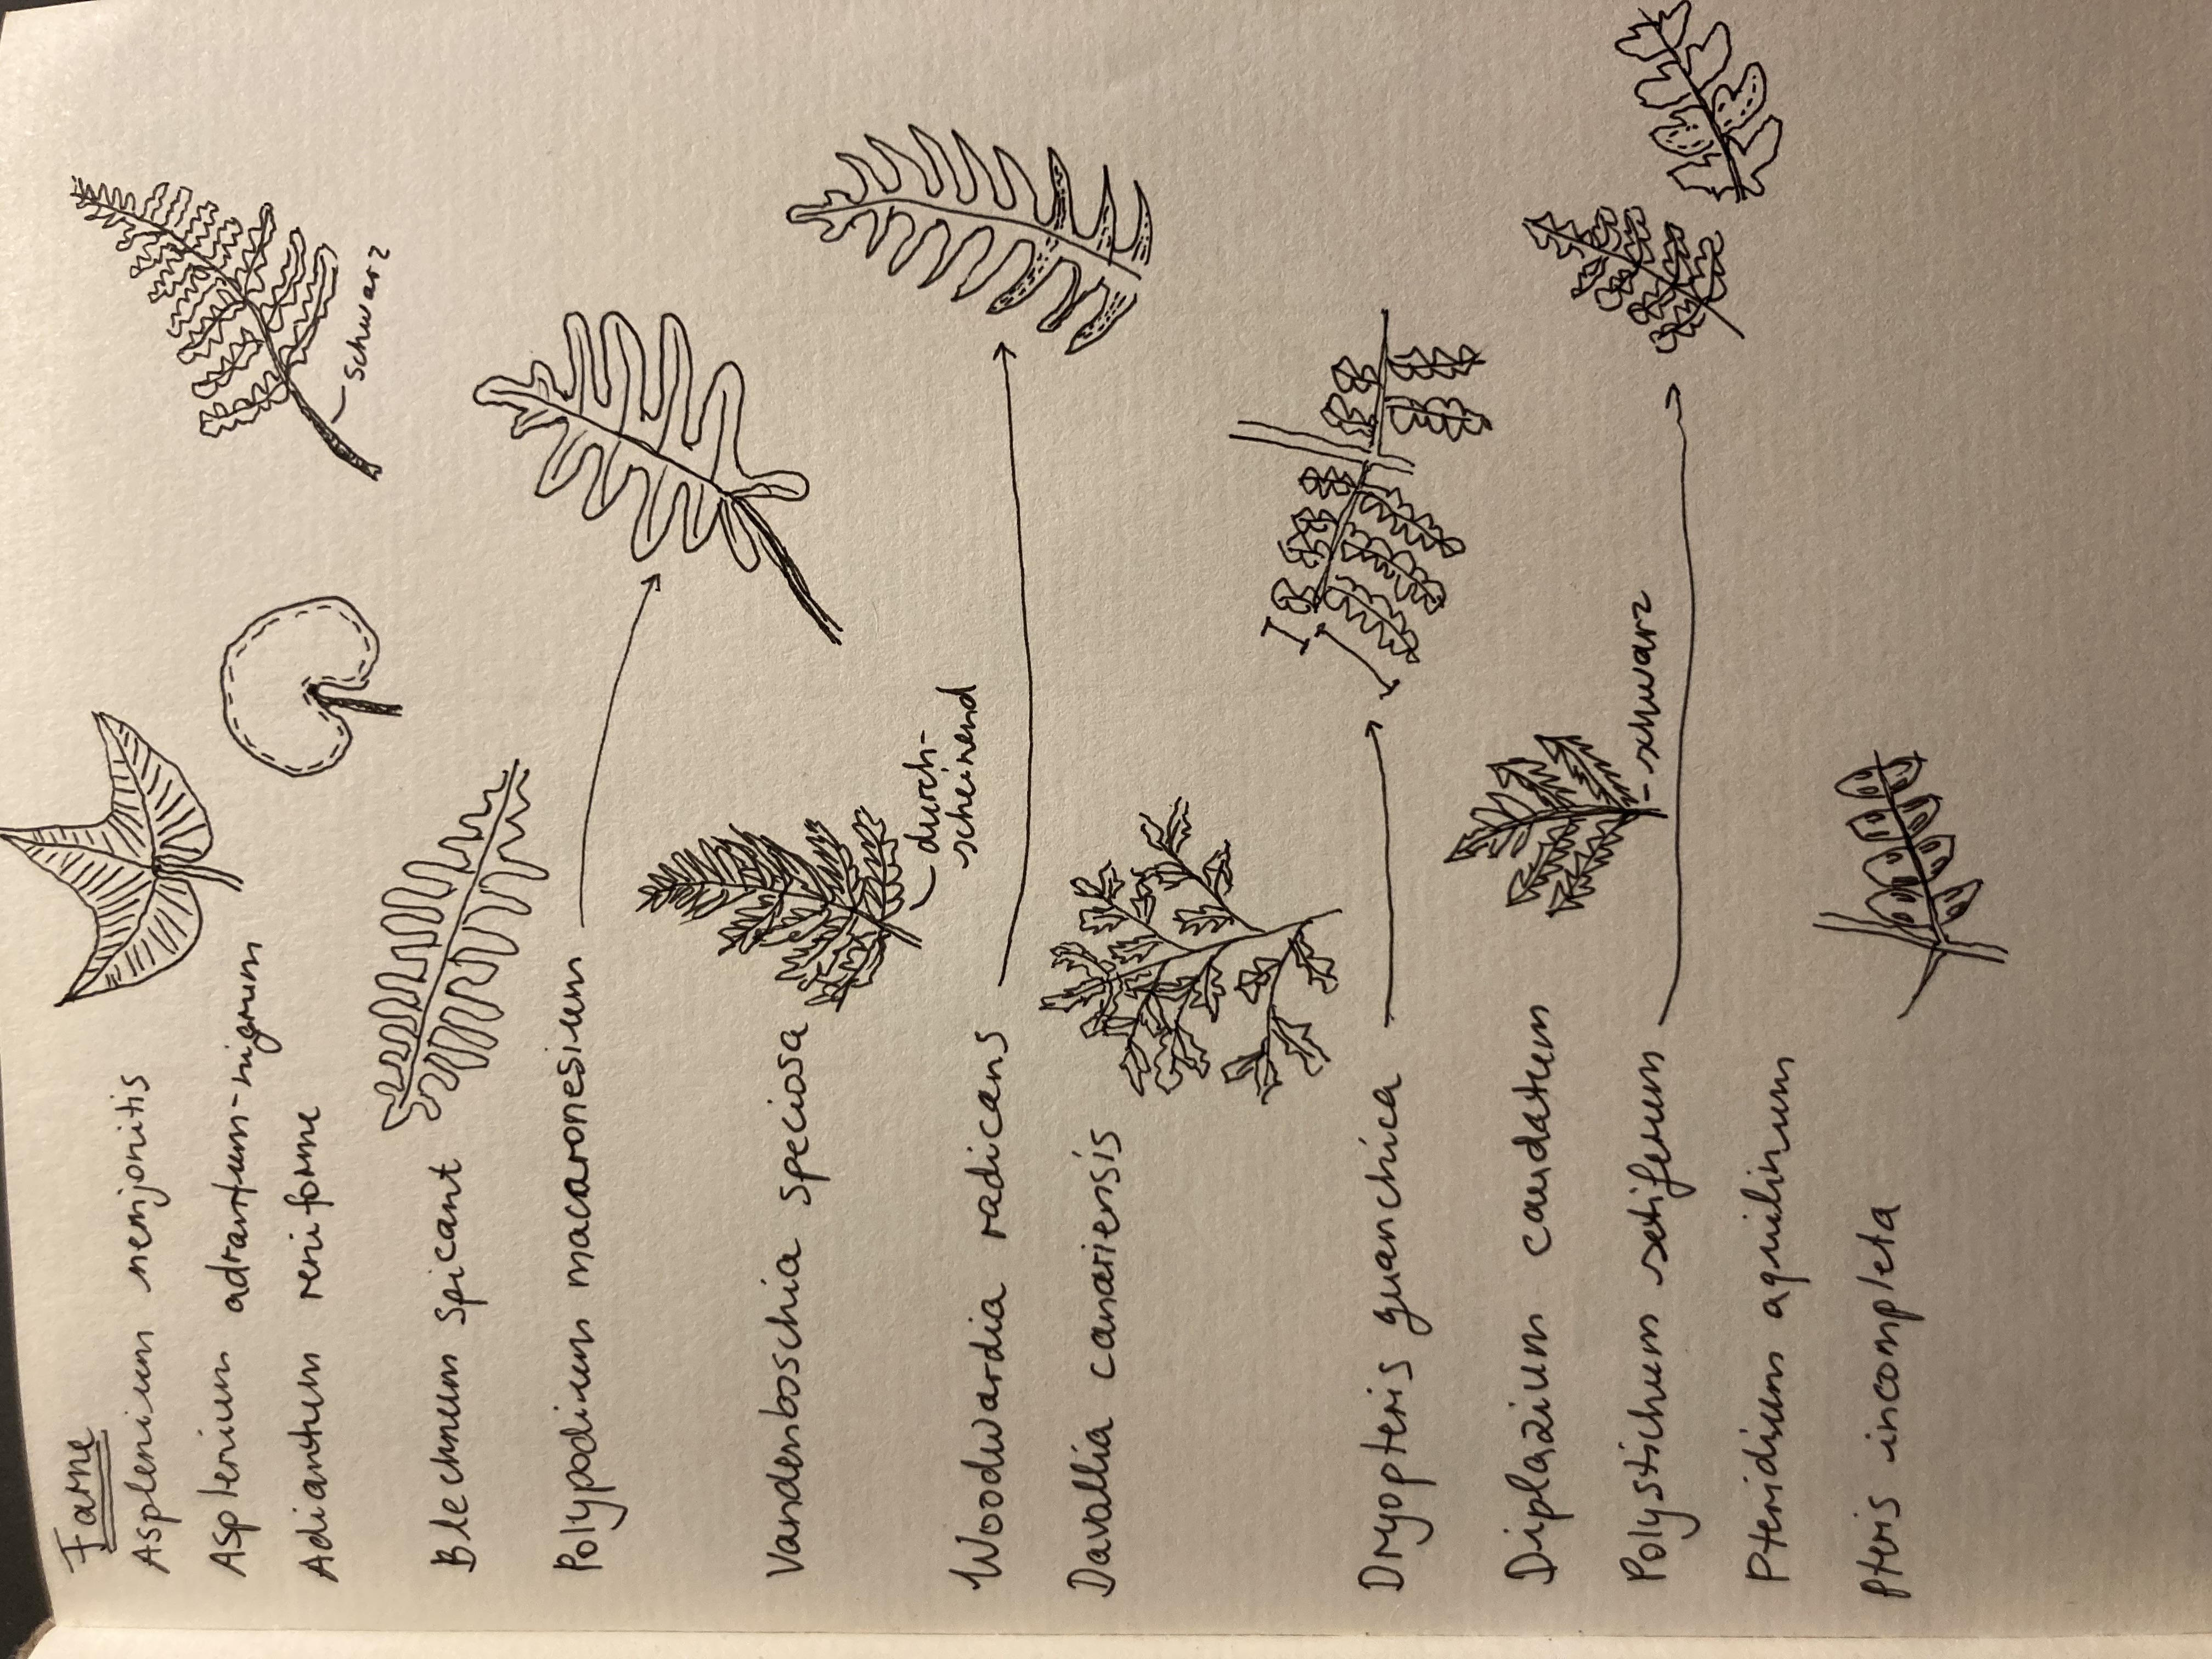 Farne
Asplenium hemionitis
Asplenium adiantum-nigrum
schwarz
Adianthum reniforme
Blechnum spicant
Polypodium macaronesium
Vandenboschia speciosa
durch-
scheinend
Woodwardia radicans
Davallia canariensis
Dryopteris guanchica
Diplazium caudatum
schwarz
Polystichum setiferum
Pteridium aquilinum
Pteris incompleta